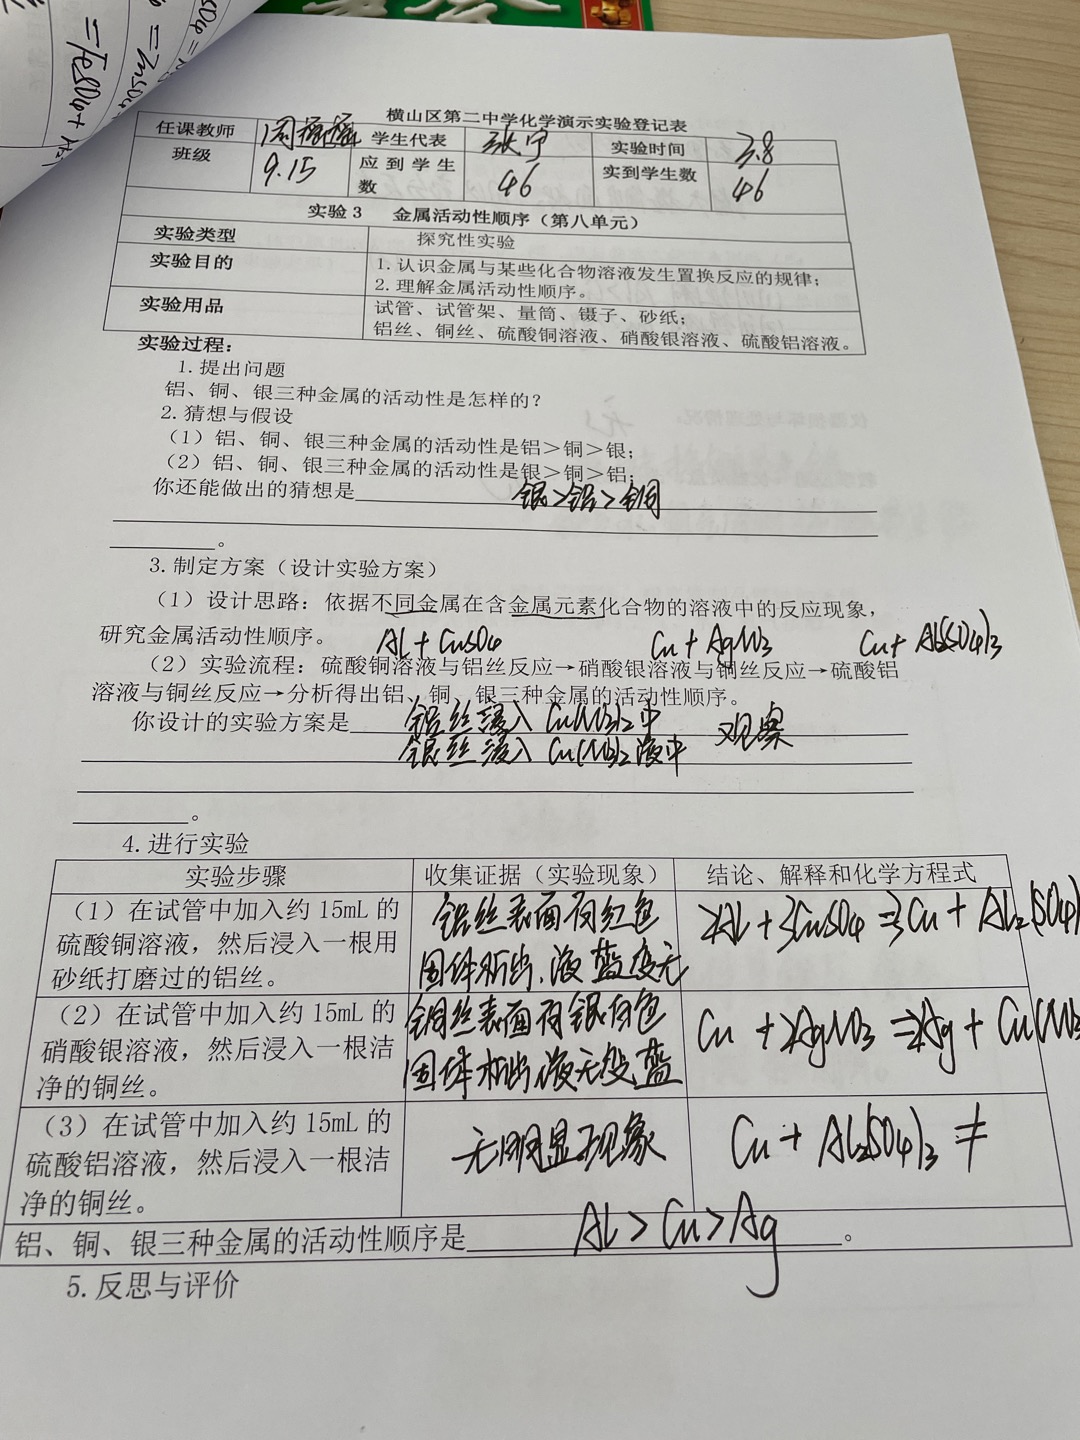 =FeSO4+
=ZnSO4
横山区第二中学化学演示实验登记表
任课教师 学生代表 张宁 实验时间 3.8
班级 9.15 应到学生数 46 实到学生数 46
实验3 金属活动性顺序（第八单元）
实验类型 探究性实验
实验目的 1.认识金属与某些化合物溶液发生置换反应的规律；
2.理解金属活动性顺序。
实验用品 试管、试管架、量筒、镊子、砂纸；
铝丝、铜丝、硫酸铜溶液、硝酸银溶液、硫酸铝溶液。
实验过程：
1.提出问题
铝、铜、银三种金属的活动性是怎样的？
2.猜想与假设
（1）铝、铜、银三种金属的活动性是铝＞铜＞银；
（2）铝、铜、银三种金属的活动性是银＞铜＞铝；
你还能做出的猜想是 银>铝>铜
。
3.制定方案（设计实验方案）
（1）设计思路：依据不同金属在含金属元素化合物的溶液中的反应现象，
研究金属活动性顺序。 Al+CuSO4 Cu+AgNO3 Cu+Al2(SO4)3
（2）实验流程：硫酸铜溶液与铝丝反应→硝酸银溶液与铜丝反应→硫酸铝
溶液与铜丝反应→分析得出铝、铜、银三种金属的活动性顺序。
你设计的实验方案是 铝丝浸入Cu(NO3)2中 观察
银丝浸入Cu(NO3)2液中
。
4.进行实验
实验步骤 收集证据（实验现象） 结论、解释和化学方程式
（1）在试管中加入约15mL的
硫酸铜溶液，然后浸入一根用
砂纸打磨过的铝丝。
铝丝表面有红色
固体析出，液蓝变无
2Al+3CuSO4=3Cu+Al2(SO4)
（2）在试管中加入约15mL的
硝酸银溶液，然后浸入一根洁
净的铜丝。
铜丝表面有银白色
固体析出，液无变蓝
Cu+2AgNO3=2Ag+Cu(NO3
（3）在试管中加入约15mL的
硫酸铝溶液，然后浸入一根洁
净的铜丝。
无明显现象
Cu+Al2(SO4)3≠
铝、铜、银三种金属的活动性顺序是 Al>Cu>Ag 。
5.反思与评价